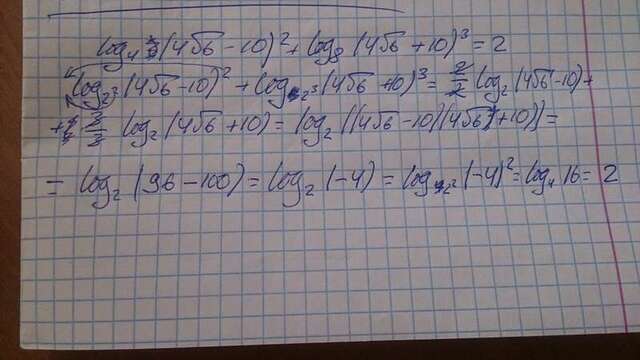 log₄ (4√6 - 10)² + log₈ (4√6 + 10)³ = 2
log₂³ (4√6 - 10)² + log₂³ (4√6 + 10)³ = 2/2 log₂ (4√6 - 10) +
+ 3/3 log₂ (4√6 + 10) = log₂ ((4√6 - 10)(4√6 + 10)) =
= log₂ (96 - 100) = log₂ (-4) = log₂² (-4)² = log₄ 16 = 2